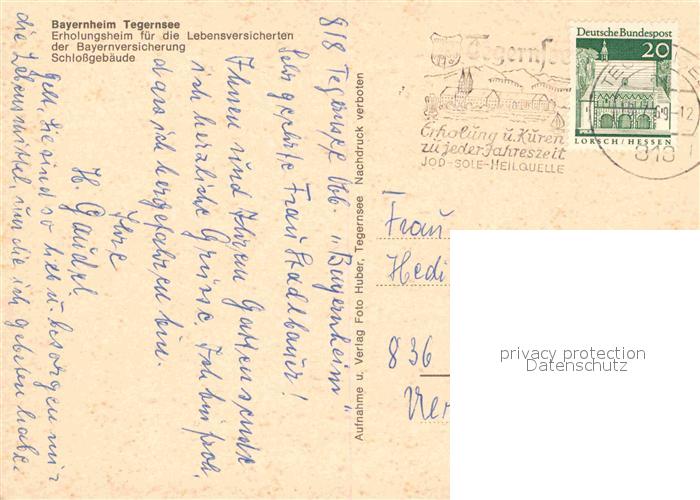 Bayernheim Tegernsee
Erholungsheim für die Lebensversicherten
der Bayernversicherung
Schloßgebäude
818 Tegernsee Obb. "Bayernheim"
Sehr geehrte Frau Stadlbauer!
Ihnen und Ihrem Gatten sende
ich herzliche Grüsse. Ich bin froh,
dass ich hergefahren bin.
Ihre
H. Gaudel
Gell, Sie sind so lieb u. besorgen mir
die Lebensmittel, um die ich gebeten habe.
Aufnahme u. Verlag Foto Huber, Tegernsee Nachdruck verboten
Tegernsee
Erholung u. Kuren
zu jeder Jahreszeit
JOD-SOLE-HEILQUELLE
Deutsche Bundespost
20
LORSCH/HESSEN
69-12
818
Frau
Hedi
836
Ver
privacy protection
Datenschutz